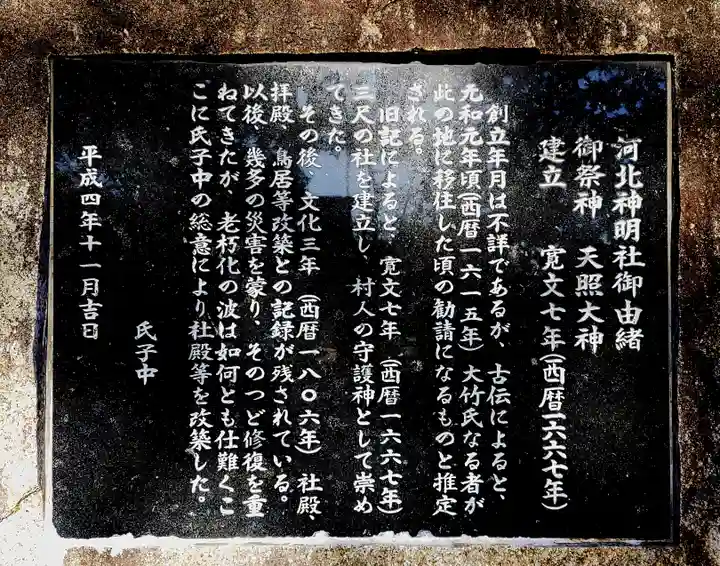 河北神明社御由緒
御祭神　天照大神
建立　寛文七年(西暦一六六七年)
創立年月は不詳であるが、古伝によると、
元和元年頃(西暦一六一五年)大竹氏なる者が
此の地に移住した頃の勧請になるものと推定
される。
旧記によると、寛文七年(西暦一六六七年)
三尺の社を建立し、村人の守護神として崇め
てきた。
その後、文化三年(西暦一八〇六年)社殿、
拝殿、鳥居等改築との記録が残されている。
以後、幾多の災害を蒙り、そのつど修復を重
ねてきたが、老朽化の波は如何とも仕難くこ
こに氏子中の総意により社殿等を改築した。
氏子中
平成四年十一月吉日